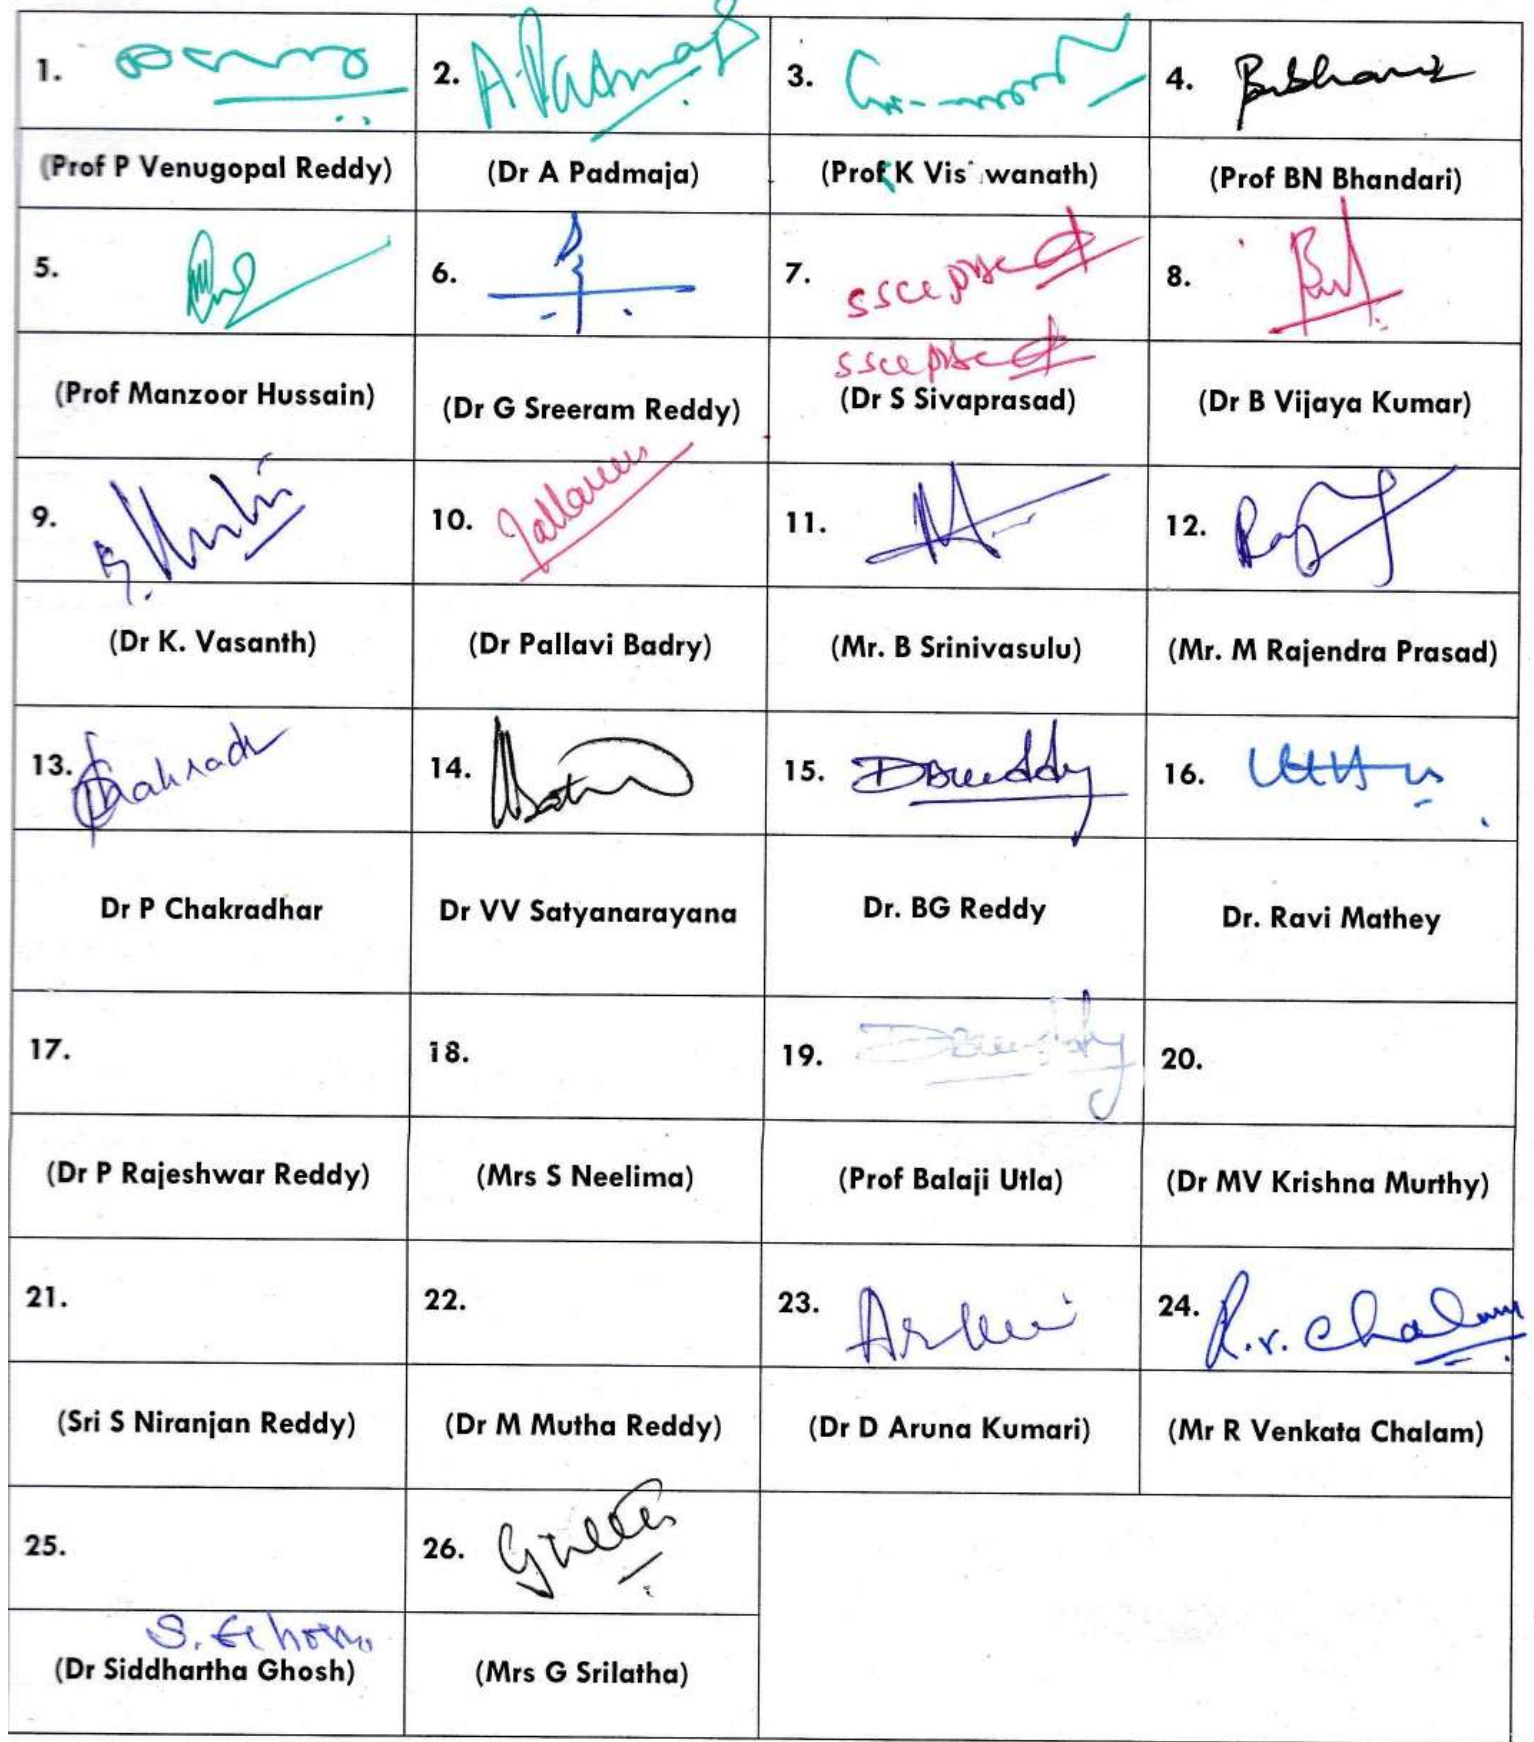 1. 2. A. Padmaja 3. 4. B. Bhand
(Prof P Venugopal Reddy) (Dr A Padmaja) (Prof K Viswanath) (Prof BN Bhandari)
5. 6. 7. 8.
(Prof Manzoor Hussain) (Dr G Sreeram Reddy) (Dr S Sivaprasad) (Dr B Vijaya Kumar)
9. 10. 11. 12.
(Dr K. Vasanth) (Dr Pallavi Badry) (Mr. B Srinivasulu) (Mr. M Rajendra Prasad)
13. 14. 15. 16.
Dr P Chakradhar Dr VV Satyanarayana Dr. BG Reddy Dr. Ravi Mathey
17. 18. 19. 20.
(Dr P Rajeshwar Reddy) (Mrs S Neelima) (Prof Balaji Utla) (Dr MV Krishna Murthy)
21. 22. 23. 24. R.V. Chalam
(Sri S Niranjan Reddy) (Dr M Mutha Reddy) (Dr D Aruna Kumari) (Mr R Venkata Chalam)
25. 26.
S. Ghosh
(Dr Siddhartha Ghosh) (Mrs G Srilatha)